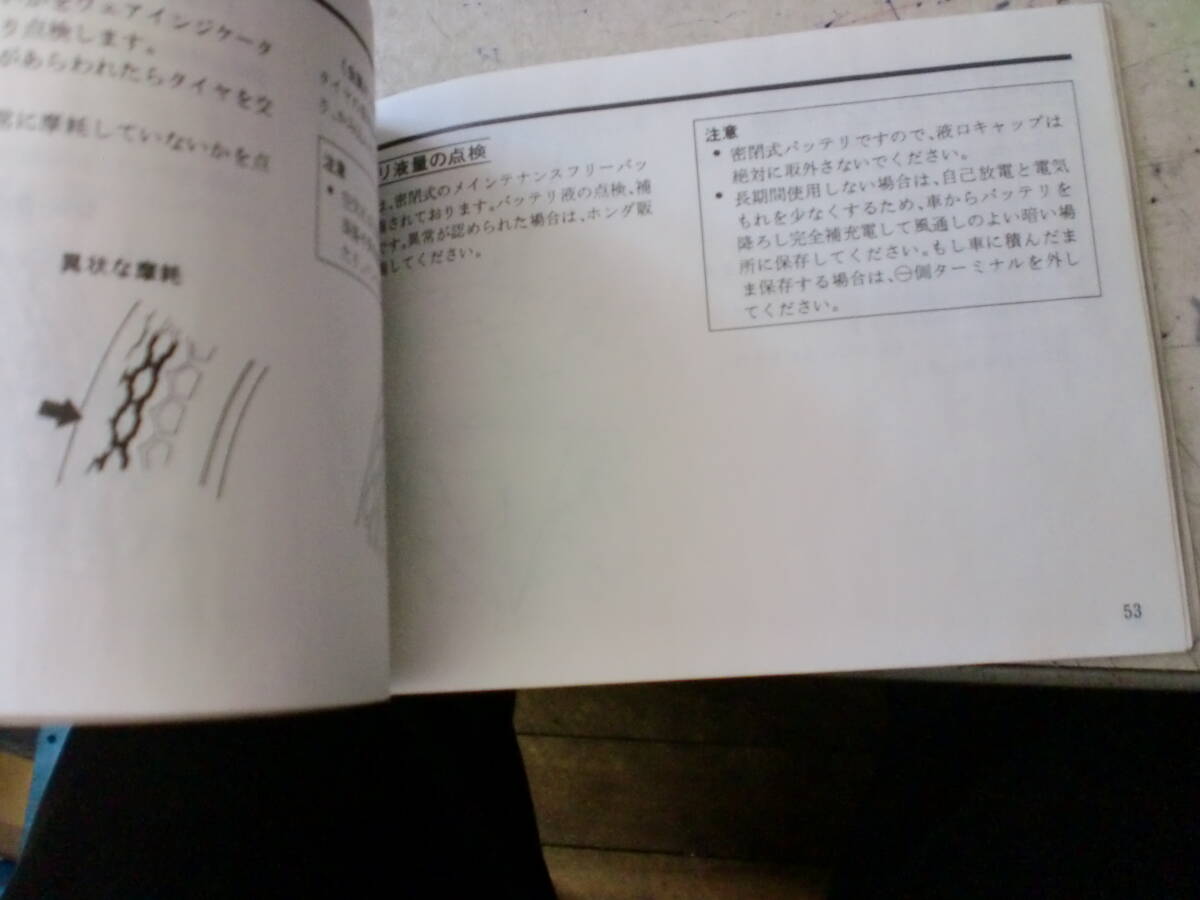 かをウェアインジケータ
り点検します。
があらわれたらタイヤを交
常に摩耗していないかを点
異状な摩耗
注意
リ液量の点検
は、密閉式のメインテナンスフリーバッ
されております。バッテリ液の点検、補
です。異常が認められた場合は、ホンダ販
してください。
注意
● 密閉式バッテリですので、液口キャップは
絶対に取外さないでください。
● 長期間使用しない場合は、自己放電と電気
もれを少なくするため、車からバッテリを
降ろし完全補充電して風通しのよい暗い場
所に保存してください。もし車に積んだま
ま保存する場合は、㊀側ターミナルを外し
てください。
53